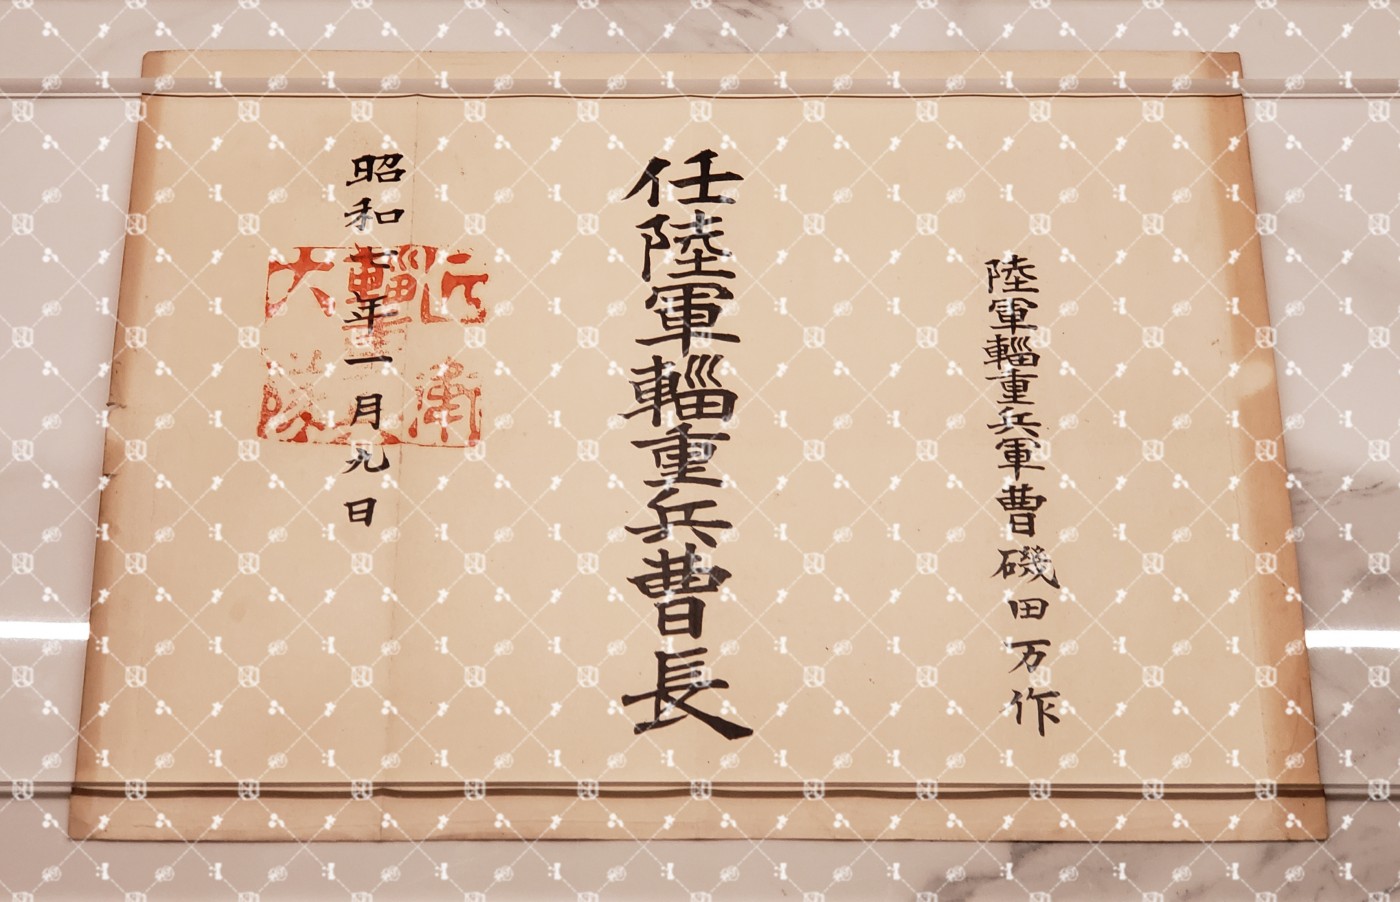 陸軍輜重兵軍曹磯田万作
任陸軍輜重兵曹長
昭和七年一月九日
近衛
輜重兵
大隊